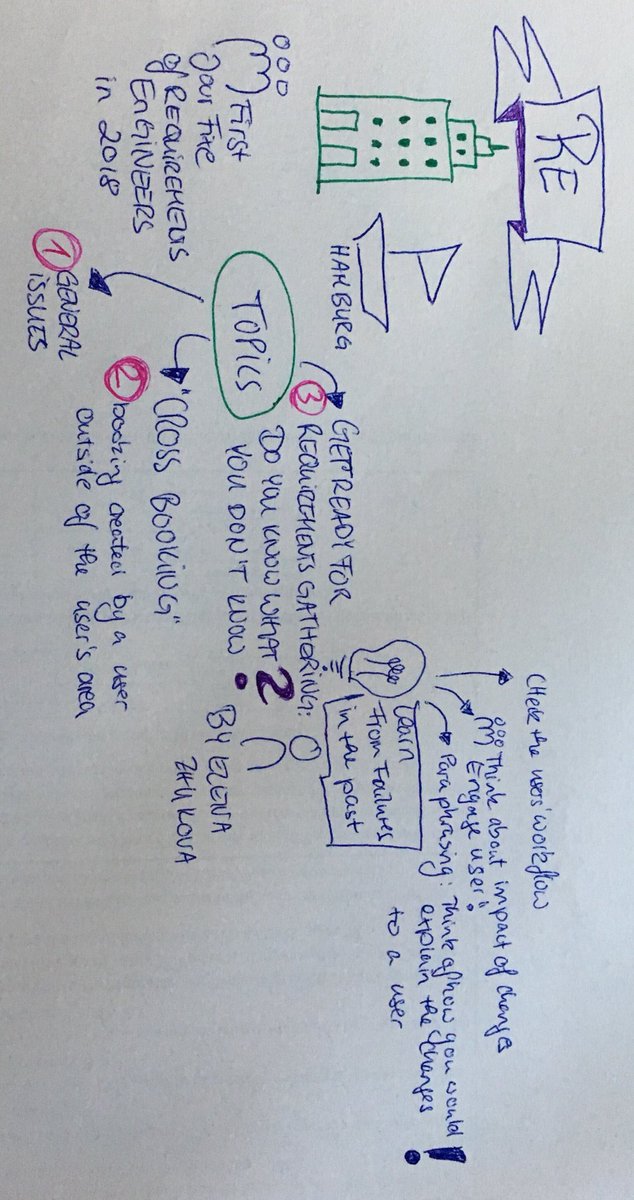 RE
HAMBURG
First
Jour Fixe
of REQUIREMENTS
ENGINEERS
in 2018
TOPICS
1 GENERAL
ISSUES
"CROSS BOOKING"
2 booking created by a user
outside of the user's area
GET READY FOR
3 REQUIREMENTS GATHERING:
DO YOU KNOW WHAT
YOU DON'T KNOW ?
BY ELENA
ZHUKOVA
Learn
From Failures
in the past
Check the users' workflow
Think about impact of changes
Engage user!
Paraphrasing: Think of how you would
explain the changes
to a user !